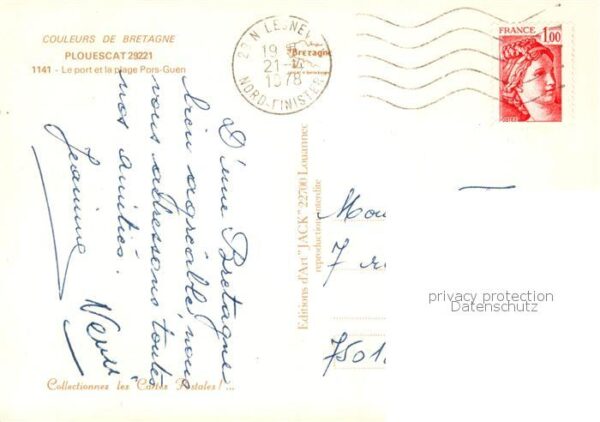 COULEURS DE BRETAGNE
PLOUESCAT 29221
1141 - Le port et la plage Pors-Guen
29 N LESNEVEN
19 H
21 -
1978
NORD-FINISTERE
Bretagne
FRANCE
1,00
D'une Bretagne
bien agréable, nous
vous adressons toutes
nos amitiés.
Jeannine
Editions d'Art "JACK" 22700 Louannec
reproduction interdite
7
privacy protection
Datenschutz
Collectionnez les Cartes Postales !...